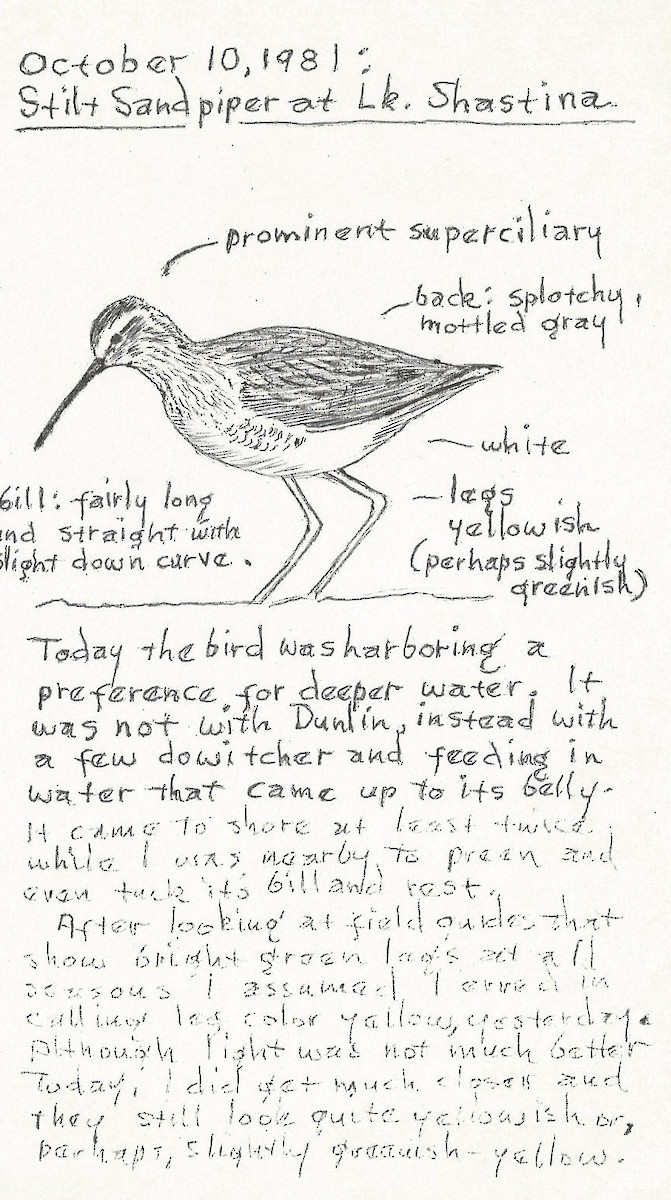 October 10, 1981:
Stilt Sandpiper at Lk. Shastina
prominent superciliary
back: splotchy,
mottled gray
white
bill: fairly long
and straight with
slight down curve.
legs
yellowish
(perhaps slightly
greenish)
Today the bird was harboring a
preference for deeper water. It
was not with Dunlin, instead with
a few dowitcher and feeding in
water that came up to its belly.
It came to shore at least twice
while I was nearby to preen and
even tuck its bill and rest.
After looking at field guides that
show bright green legs at all
seasons I assumed I erred in
calling leg color yellow, yesterday.
Although light was not much better
Today, I did get much closer and
they still look quite yellowish or,
perhaps, slightly greenish-yellow.